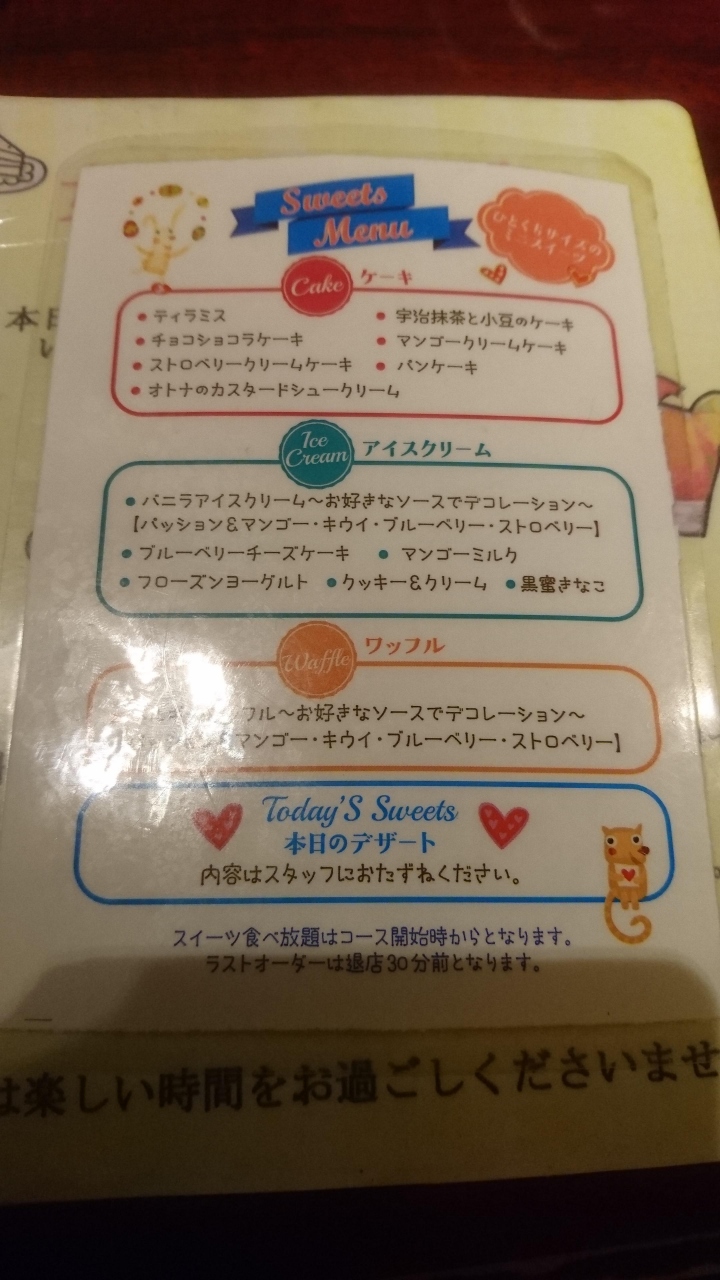 Sweets
Menu
ひとくちサイズの
ミニスイーツ
Cake ケーキ
• ティラミス • 宇治抹茶と小豆のケーキ
• チョコショコラケーキ • マンゴークリームケーキ
• ストロベリークリームケーキ • パンケーキ
• オトナのカスタードシュークリーム
Ice
Cream アイスクリーム
• バニラアイスクリーム～お好きなソースでデコレーション～
【パッション&マンゴー・キウイ・ブルーベリー・ストロベリー】
• ブルーベリーチーズケーキ • マンゴーミルク
• フローズンヨーグルト • クッキー&クリーム • 黒蜜きなこ
Waffle ワッフル
フル～お好きなソースでデコレーション～
マンゴー・キウイ・ブルーベリー・ストロベリー】
Today'S Sweets
本日のデザート
内容はスタッフにおたずねください。
スイーツ食べ放題はコース開始時からとなります。
ラストオーダーは退店30分前となります。
本日
い
は楽しい時間をお過ごしくださいませ